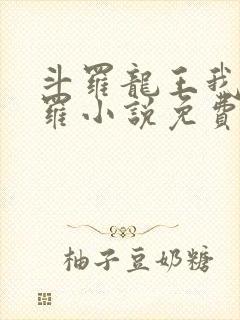 斗羅龍王我
羅小說免費
柚子豆奶糖